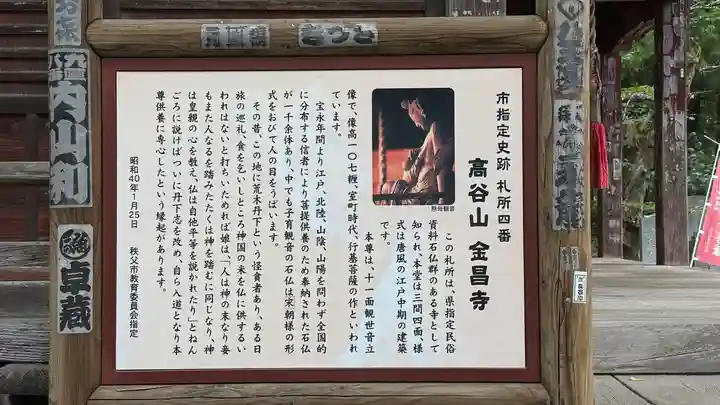 市指定史跡 札所四番
高谷山 金昌寺
この札所は、県指定民俗
資料石仏群のある寺として
知られ、本堂は三間四面、様
式は唐風の江戸中期の建築
です。
本尊は、十一面観世音立
像で、像高一〇七糎、室町時代、行基菩薩の作といわれ
ています。
宝永年間より江戸、北陸、山陰、山陽を問わず全国的
に分布する信者により菩提供養のため奉納された石仏
が一千余体あり、中でも子育観音の石仏は宋朝様の形
式をおびて人の目をうばいます。
その昔、この地に荒木丹下という怪貪者あり、ある日
旅の巡礼、食を乞いしところ神国の米を仏に供するい
われはないと打ちいためれば娘は、「人は神の末なり妾
もまた人なるを踏みたたくは神を踏むに同じなり、神
は皇親の心を教え、仏は自他平等を説かれたり」とねん
ごろに説けばついに丹下志を改め、自ら入道となり本
尊供養に専心したという縁起があります。
昭和40年1月25日 秩父市教育委員会指定
慈母観音
内山和
卓蔵